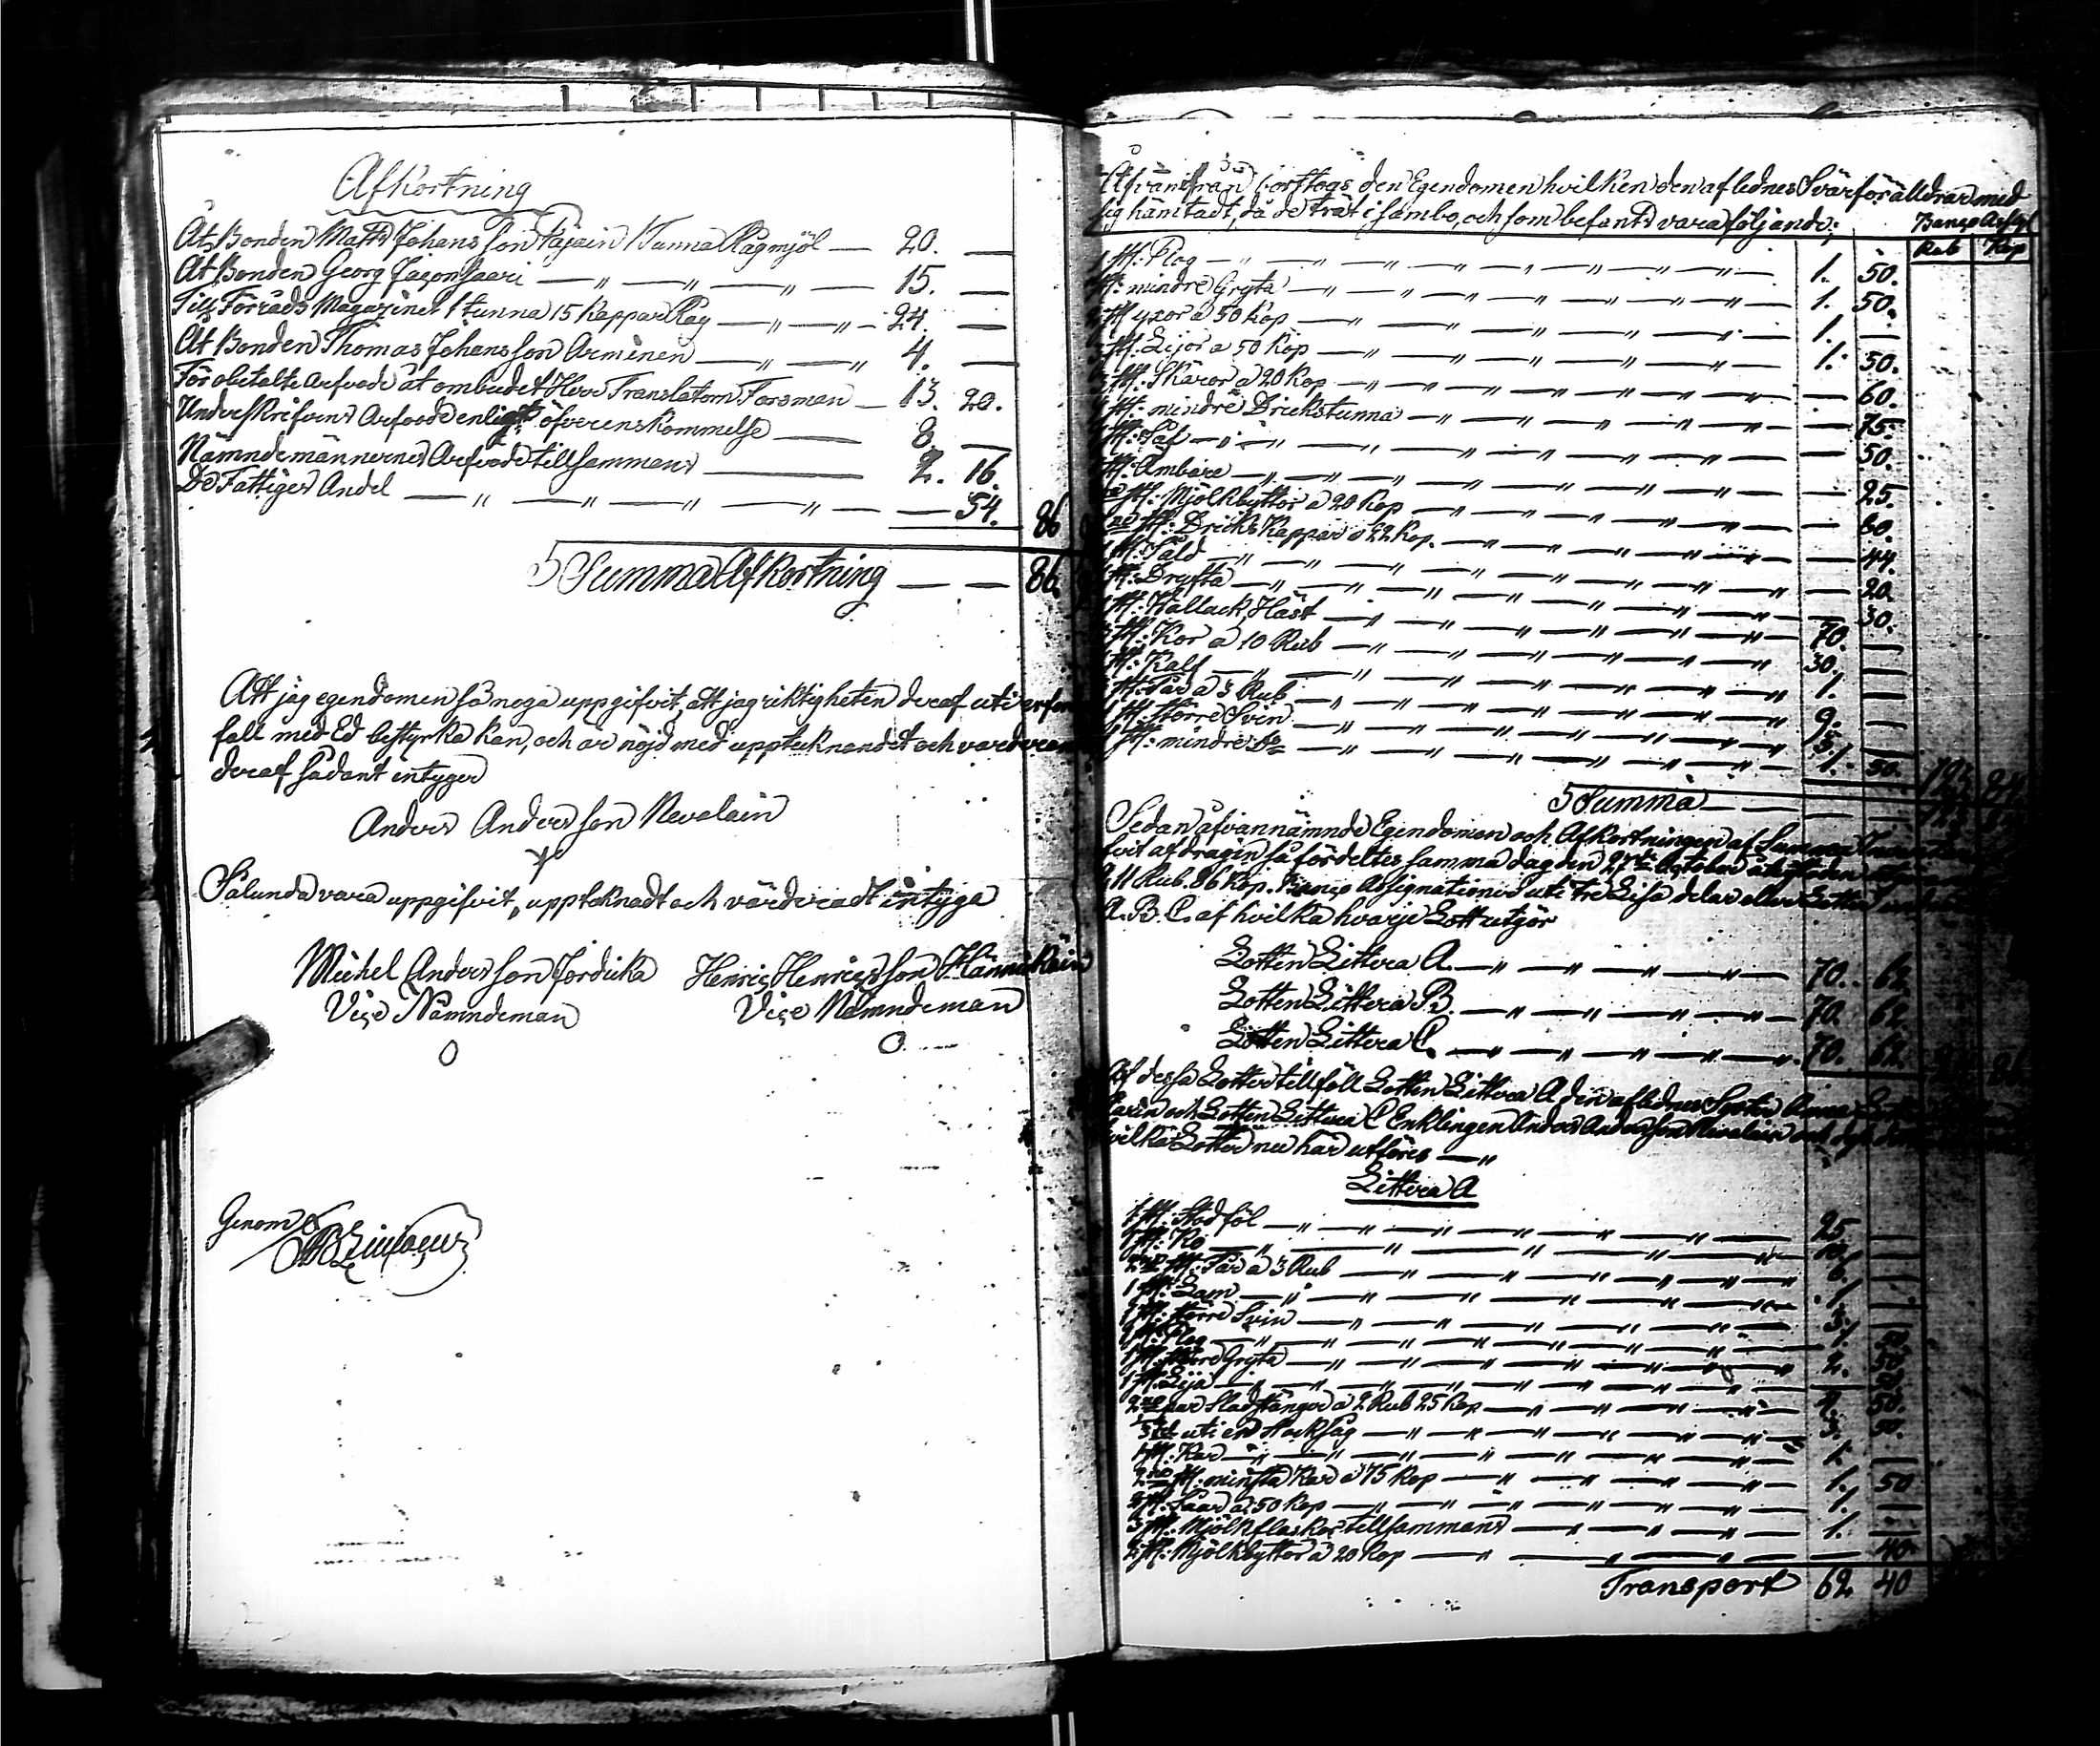 Afkortning
Åt Bonden Matts Johansson Pajain 1 Tunna Rågmjöl — 20. —
Åt Bonden Georg — „ — „ — „ — 15. —
Till Förråds Magazinet 1 tunna 15 Kappar Råg — „ — „ — 24. —
Åt Bonden Thomas Johansson Arminen — „ — „ 4. —
För obetalte Arfvode åt ombudet Herr Translatorn Forsman — 13. 20.
Underskrifvens Arfvode enligt öfverenskommelse — 8. —
Nämndemännernes Arfvode tillsammans — 2. 16.
De Fattiges Andel — „ — „ — „ — „ — 54. 86
Summa Afkortning — — 86.
Att jag egendomen så noga uppgifvit, att jag riktigheten deraf uti
fall med Ed bestyrka kan, och är nöjd med upptecknandet och
deraf sådant intygar
Anders Andersson Nevalain
Sålunda vara uppgifvit, upptecknadt och värderadt intyga
Michel Andersson Jordika Henric Henricsson Hännikäin
Vice Nämndeman Vice Nämndeman
Genom
Åfvanifrån borttogs den Egendomen hvilken den aflednes Svärföräldrar med
sig hämtadt, då de trät i sambo, och som befants vara följande:
Banco Assig
Rub Kop
1 st: Plog — „ — „ — „ — 1. 50.
st: mindre Gryta — „ — „ — „ — 1. 50.
st yxor a 50 Kop — „ — „ — 1. —
st: Lijor a 50 Kop — „ — „ — 1. 50.
st: Skäror a 20 Kop — „ — „ — 60.
st: mindre Drickstunna — „ — „ — 75.
st: — „ — „ — 50.
st: Ambare — „ — „ — 25.
st: Mjölkbyttor a 20 Kop — „ — „ — 80.
st: Dricks Kappar a 22 Kop. — „ — „ — 44.
st: Såld — „ — „ — 20.
st: Dryfta — „ — „ — 30.
st: Wallack Häst — „ — „ — 70. —
st: Kor a 10 Rub — „ — „ — 30. —
st: Kalf — „ — „ — 1. —
st: Får a 3 Rub — „ — „ — 9. —
1 st: större Svin — „ — „ — 3. —
1 st: mindre Do — „ — „ — 1. 50.
Summa
Sedan åfvannämnde Egendomen och Afkortningen af Summa
vit afdragin så fördeltes samma dag den October
211 Rub. 86 Kop. Banco Assignationer uti tre Lika delar eller Lotter
A. B. C. af hvilka hvarje Lott utgör
Lotten Littera A. — „ — „ — 70. 62.
Lotten Littera B. — „ — „ — 70. 62.
Lotten Littera C. — „ — „ — 70. 62.
Af dessa Lotter tillföll Lotten Littera A den aflednes Syster Anna
Karin och Lotten Littera C Enklingen Anders Andersson Nevalain
hvilka Lotter nu här utföres — „
Littera A
1 st: Stod föl — „ — „ — 25. —
1 st: Ko — „ — „ — 10. —
2ne st: Får a 3 Rub — „ — „ — 6. —
1 st: Lam — „ — „ — 1. —
1 st: större Svin — „ — „ — 3. —
1 st: Plog — „ — „ — 1. 50.
1 st: större Gryta — „ — „ — 2. 50.
1 st: Lija — „ — „ — 50.
2ne par Slad stänger a 2 Rub 25 Kop — „ — „ — 4. 50.
uti en stocksåg — „ — „ — 3. 50.
1 st: Kar — „ — „ — 1. —
2ne st: minsta Kar a 75 Kop — „ — „ — 1. 50
2 st: Saar a 50 Kop — „ — „ — 1. —
3 st: Mjölkflaskor tillsammans — „ — „ — 1. —
2 st: Mjölkbyttor a 20 Kop — „ — „ — 40.
Transport 62 40